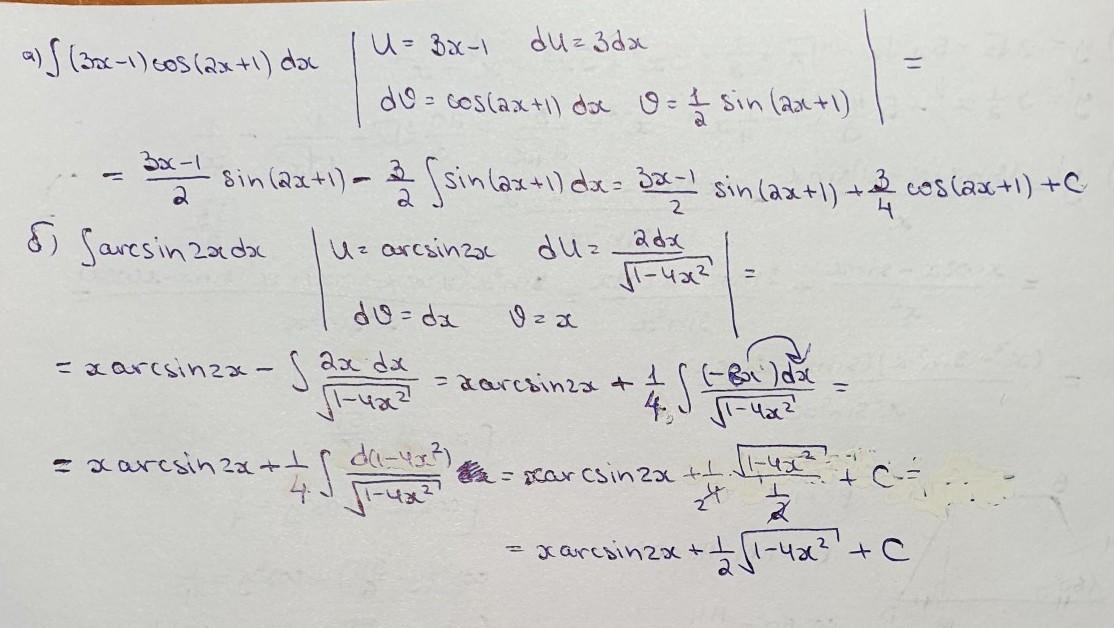 а) ∫(3x−1)cos(2x+1) dx | U = 3x−1 dU = 3dx
dϑ = cos(2x+1) dx ϑ = 1/2 sin(2x+1) | =
= (3x−1)/2 sin(2x+1) − 3/2 ∫sin(2x+1) dx = (3x−1)/2 sin(2x+1) + 3/4 cos(2x+1) + C
б) ∫arcsin2xdx | U = arcsin2x dU = 2dx/√(1−4x²) | =
dϑ = dx ϑ = x
= x arcsin2x − ∫ 2x dx/√(1−4x²) = xarcsin2x + 1/4 ∫ (−8x)dx/√(1−4x²) =
= x arcsin2x + 1/4 ∫ d(1−4x²)/√(1−4x²) = xarcsin2x + 1/4 · √(1−4x²)/(1/2) + C =
= xarcsin2x + 1/2 √(1−4x²) + C